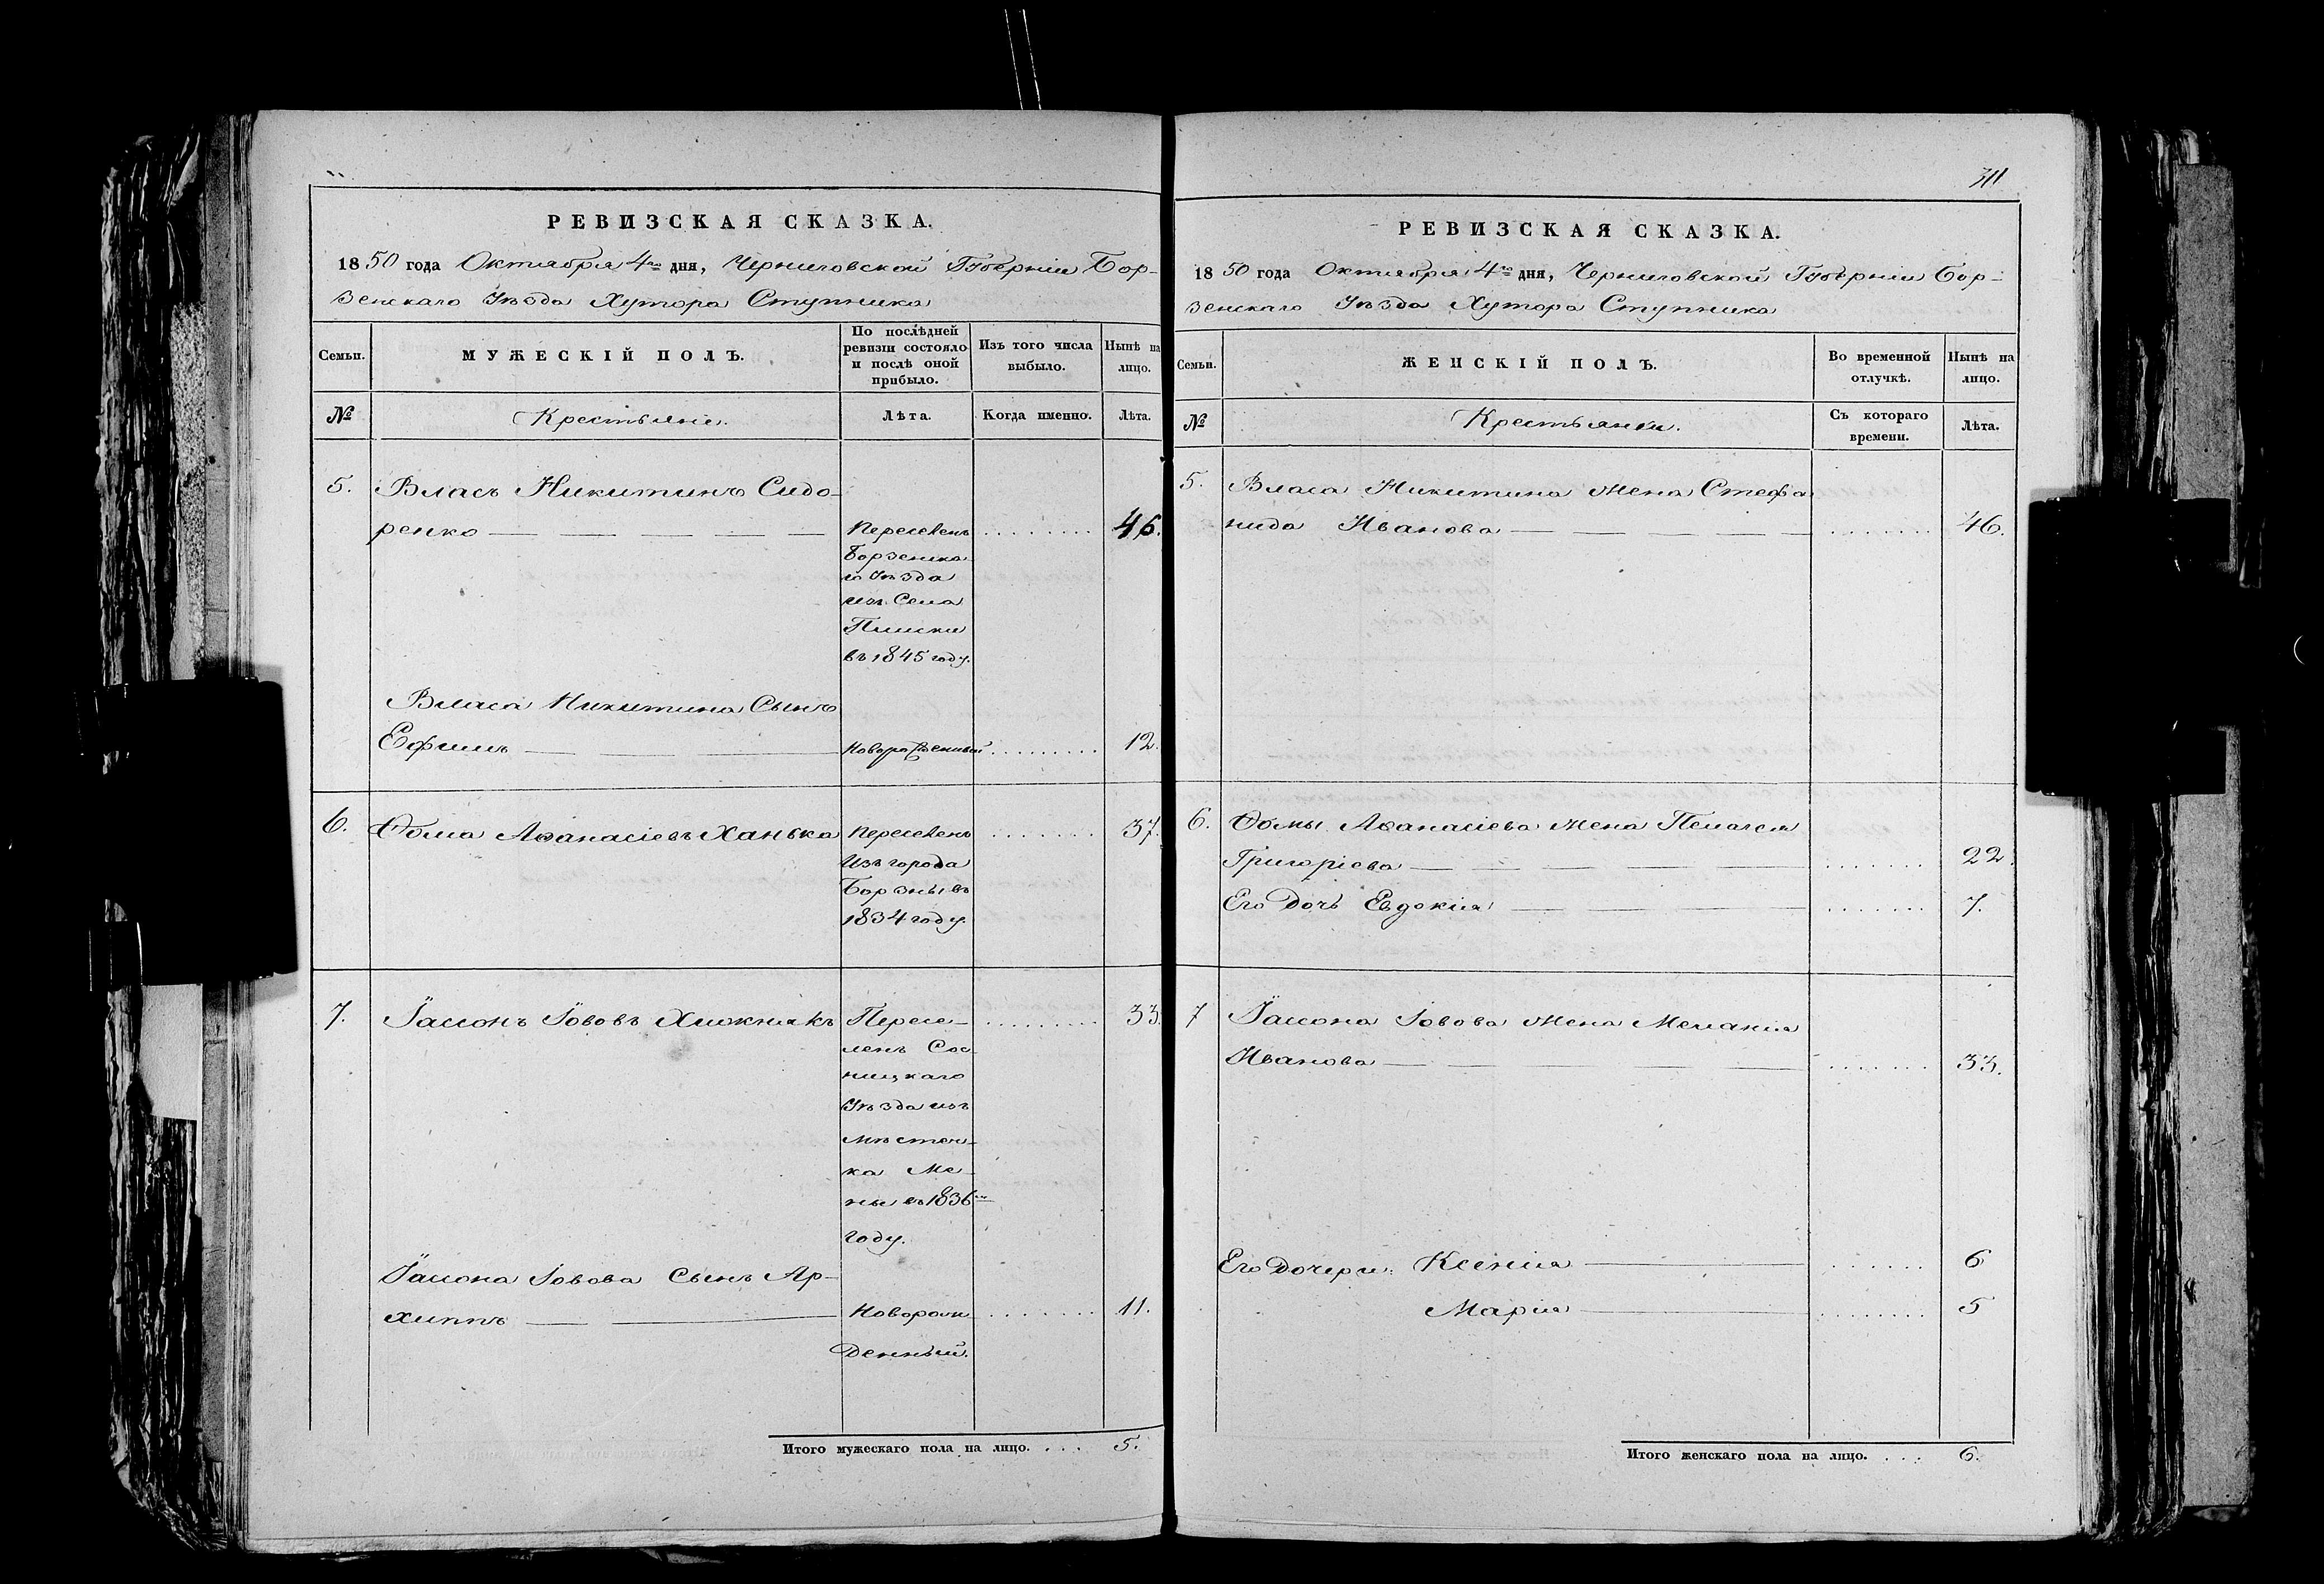 РЕВИЗСКАЯ СКАЗКА.
1850 года Октября 4го дня, Черниговской Губерніи Бор-
зенскаго Уѣзда Хутора Ступника
Семьи.
МУЖЕСКІЙ ПОЛЪ.
По послѣдней
ревизіи состояло
и послѣ оной
прибыло.
Изъ того числа
выбыло.
Нынѣ на
лицо.
№
Крестьяне.
Лѣта.
Когда именно.
Лѣта.
5. Власъ Никитинъ Сидо-
ренко Переселенъ 46.
Борзенска
го Уѣзда
изъ Села
Плиски
въ 1845 году.
Власа Никитина Сынъ
Ефимъ Новорожденный 12.
6. Ѳома Аѳанасіевъ Ханька Переселенъ 37.
Изъ города
Борзны въ
1834 году.
7. Іасонъ Іововъ Хижнякъ Пересе- 33.
ленъ Сос-
ницкаго
Уѣзда изъ
Мѣстеч-
ка Ме-
ны въ 1836мъ
году.
Іасона Іовова Сынъ Ар-
хиппъ Новорож 11.
денный.
Итого мужескаго пола на лицо. . . . 5.
311
РЕВИЗСКАЯ СКАЗКА.
1850 года Октября 4го дня, Черниговской Губерніи Бор-
зенскаго Уѣзда Хутора Ступника
Семьи.
ЖЕНСКІЙ ПОЛЪ.
Во временной
отлучкѣ.
Нынѣ на
лицо.
№
Крестьянки.
Съ котораго
времени.
Лѣта.
5. Власа Никитина Жена Стефа
нида Иванова 46.
6. Ѳомы Аѳанасіева Жена Пелагея
Григоріева 22.
Его Дочь Евдокія 7.
7 Іасона Іовова Жена Меланія
Иванова 33.
Его Дочери: Ксенія 6
Марія 5
Итого женскаго пола на лицо. . . . 6.